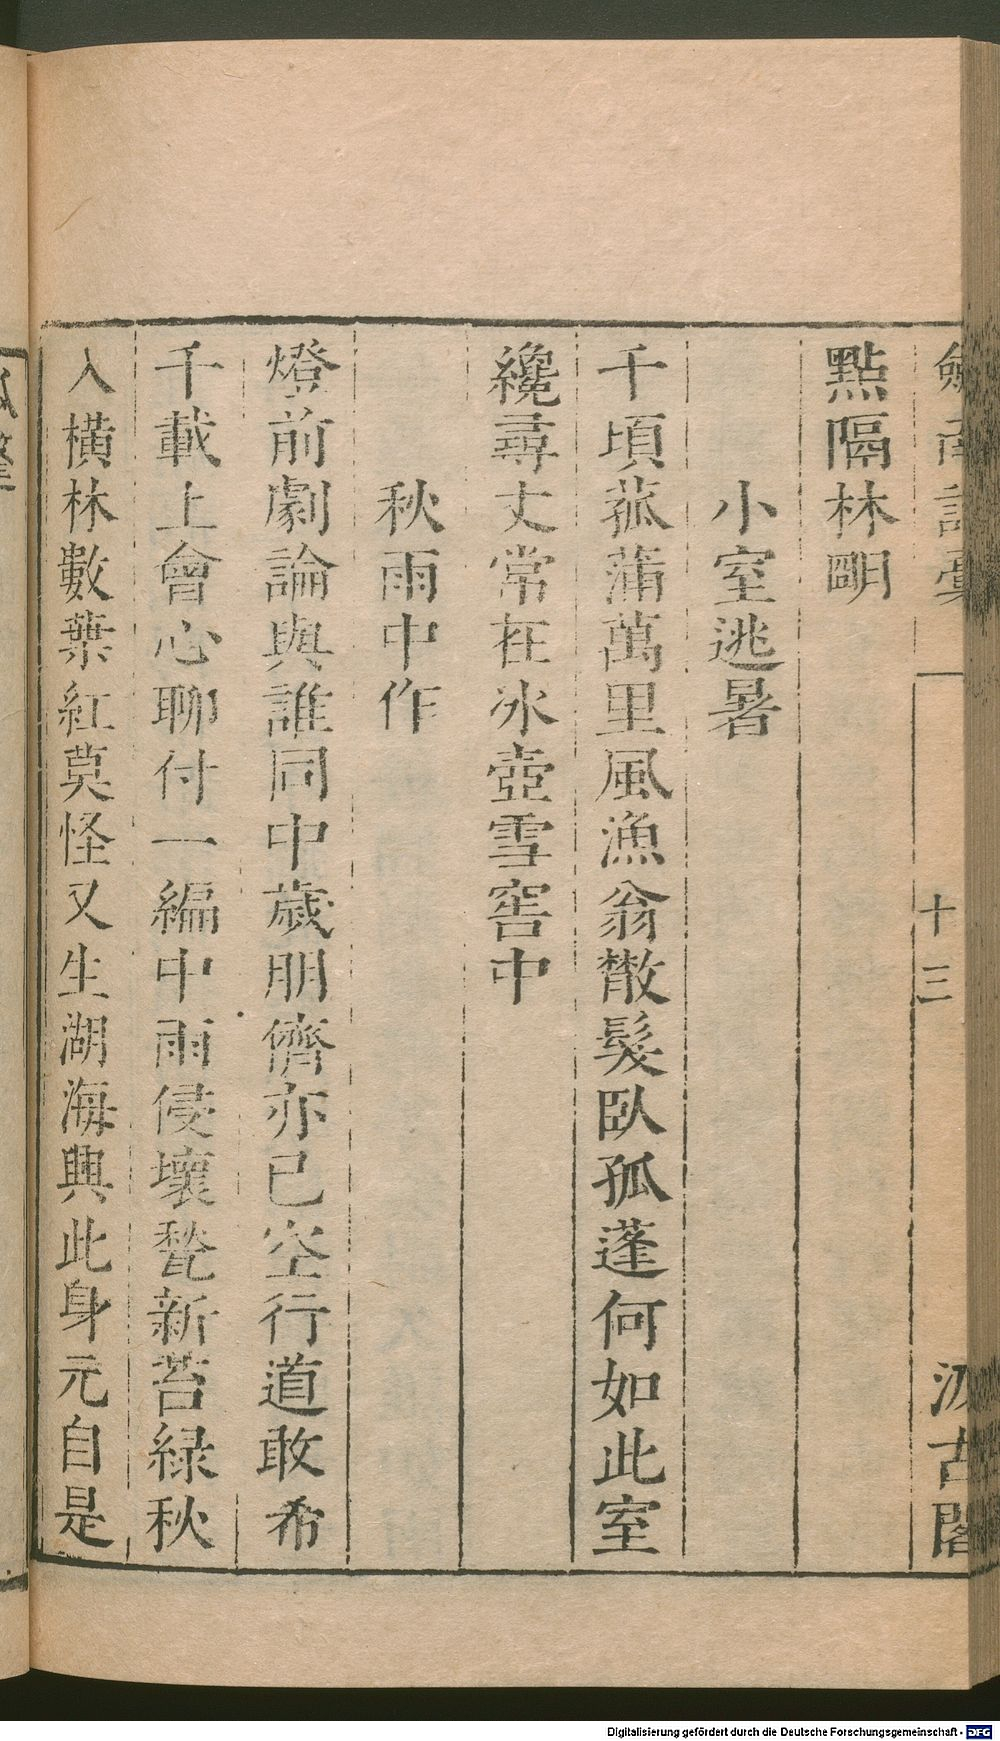 劍南詩稾
十三
汲古閣
點隔林明
小室逃暑
千頃菰蒲萬里風漁翁散髮臥孤蓬何如此室
纔尋丈常在冰壺雪窖中
秋雨中作
燈前劇論與誰同中歲朋儕亦已空行道敢希
千載上會心聊付一編中雨侵壞甃新苔緑秋
入橫林數葉紅莫怪又生湖海興此身元自是
Digitalisierung gefördert durch die Deutsche Forschungsgemeinschaft - DFG